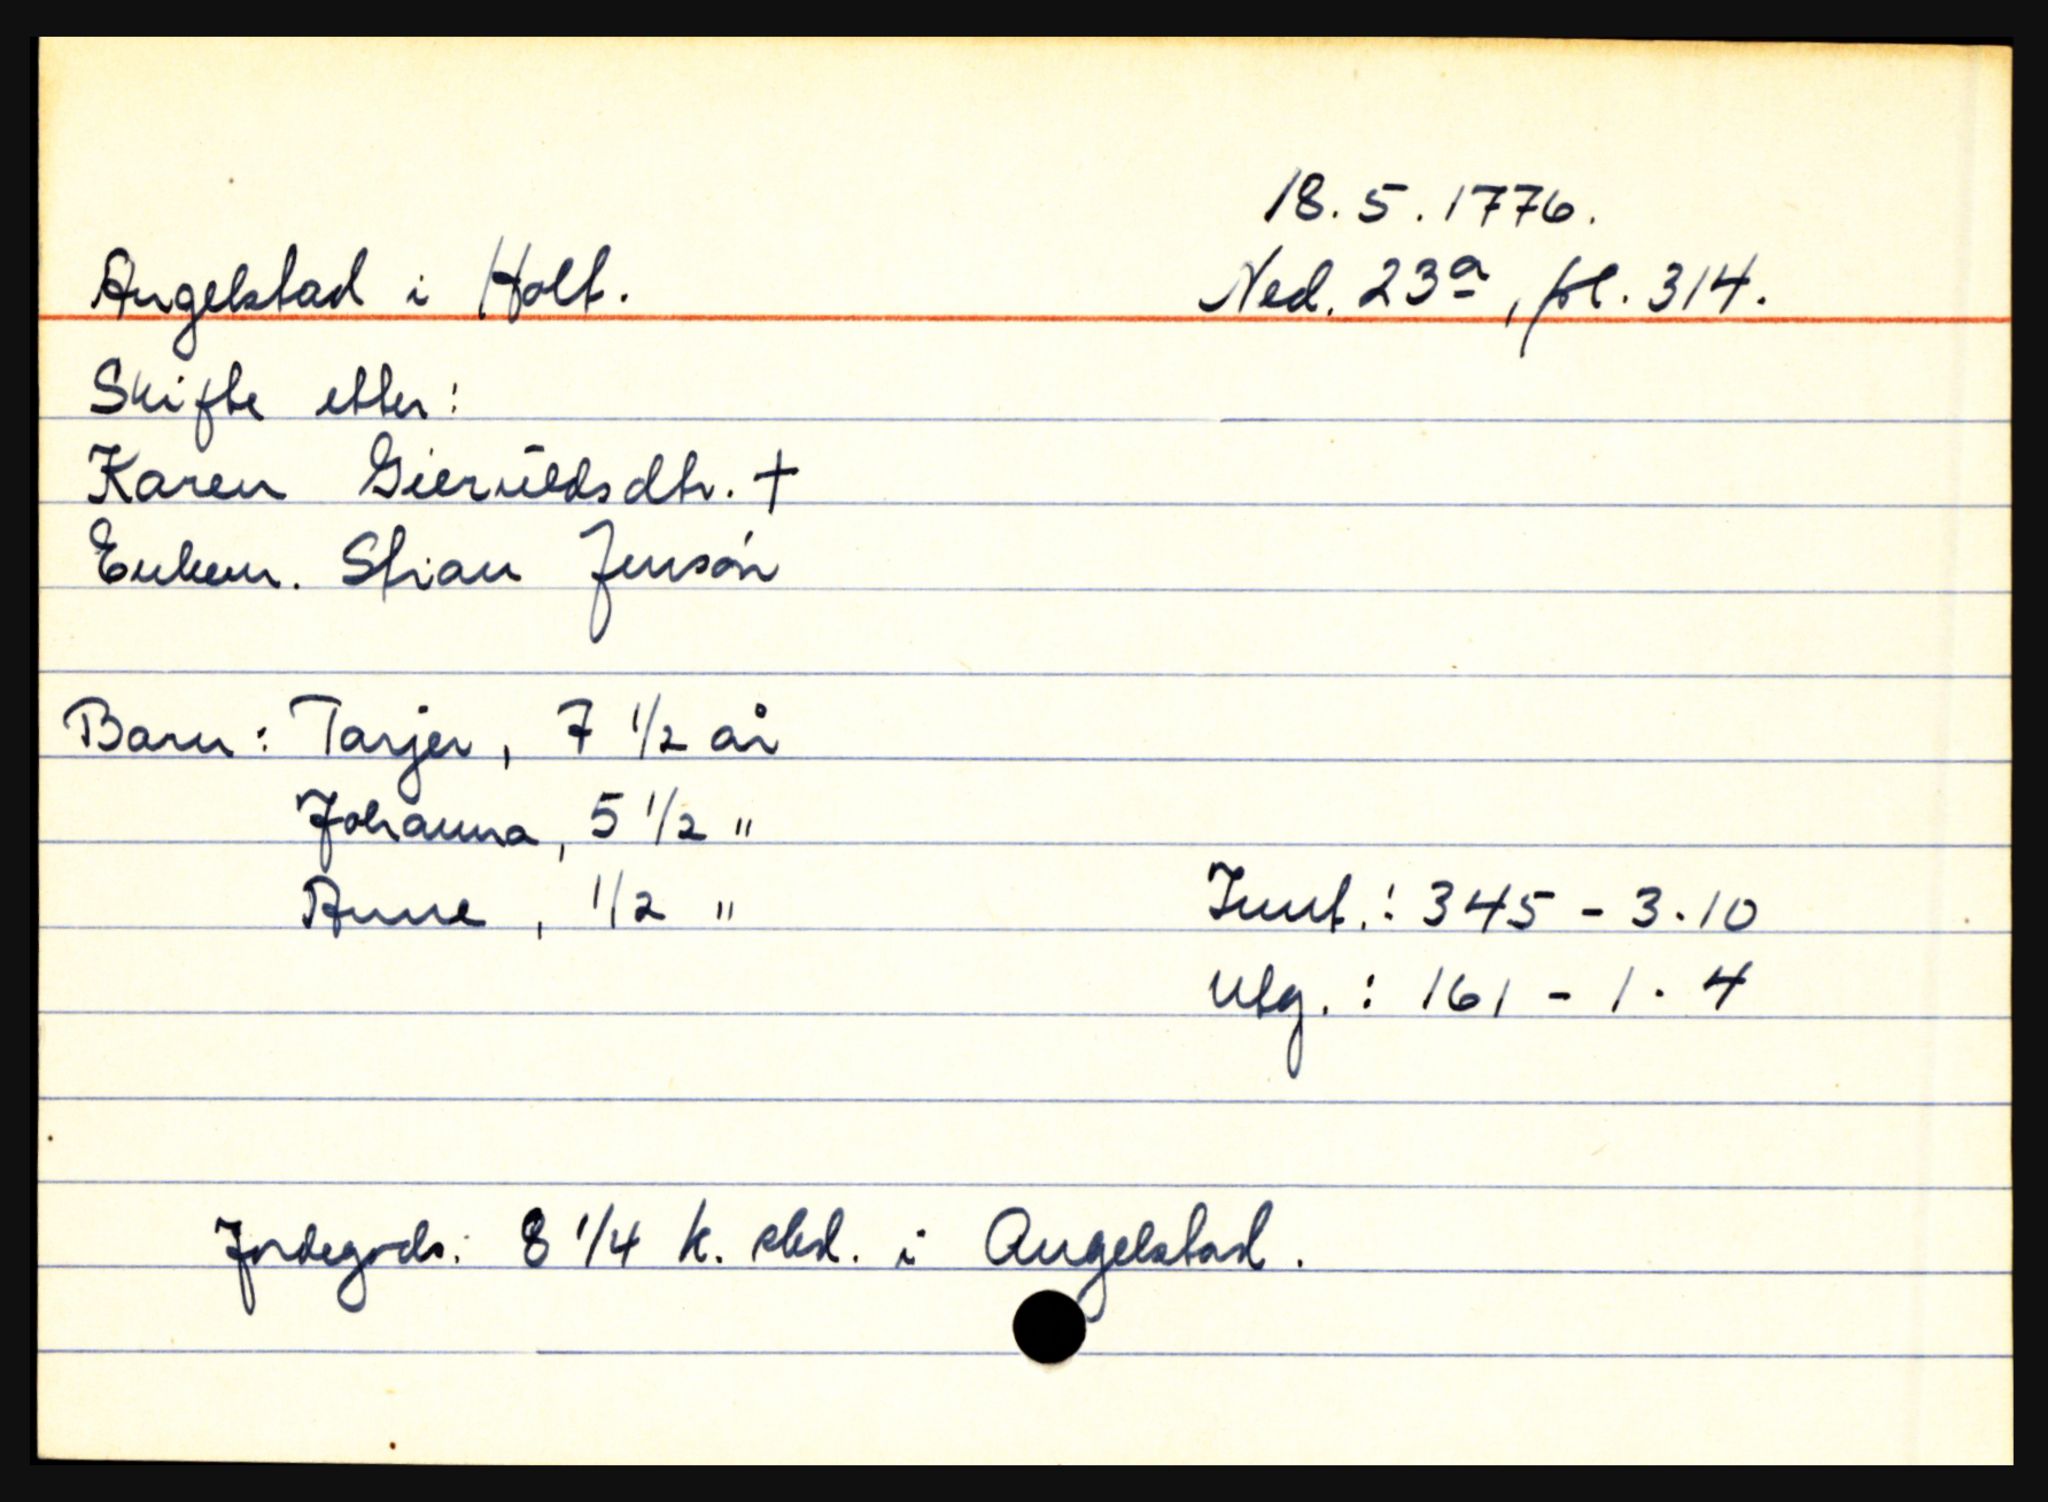 18.5.1776.
Angelstad i Holt. Ned. 23a, fol. 314.
Skifte etter:
Karen Gierulldsdtr. †
Enkem. Stian Jensøn
Barn: Tarjer, 7 1/2 år
Johanna, 5 1/2 "
Anne, 1/2 " Innt.: 345 - 3.10
Utg.: 161 - 1. 4
Jordegods: 8 1/4 k. skd. i Angelstad.